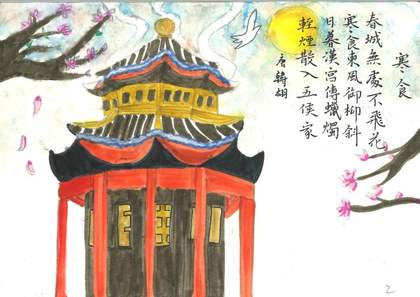 寒食
春城無處不飛花
寒食東風御柳斜
日暮漢宮傳蠟燭
輕煙散入五侯家
唐
2